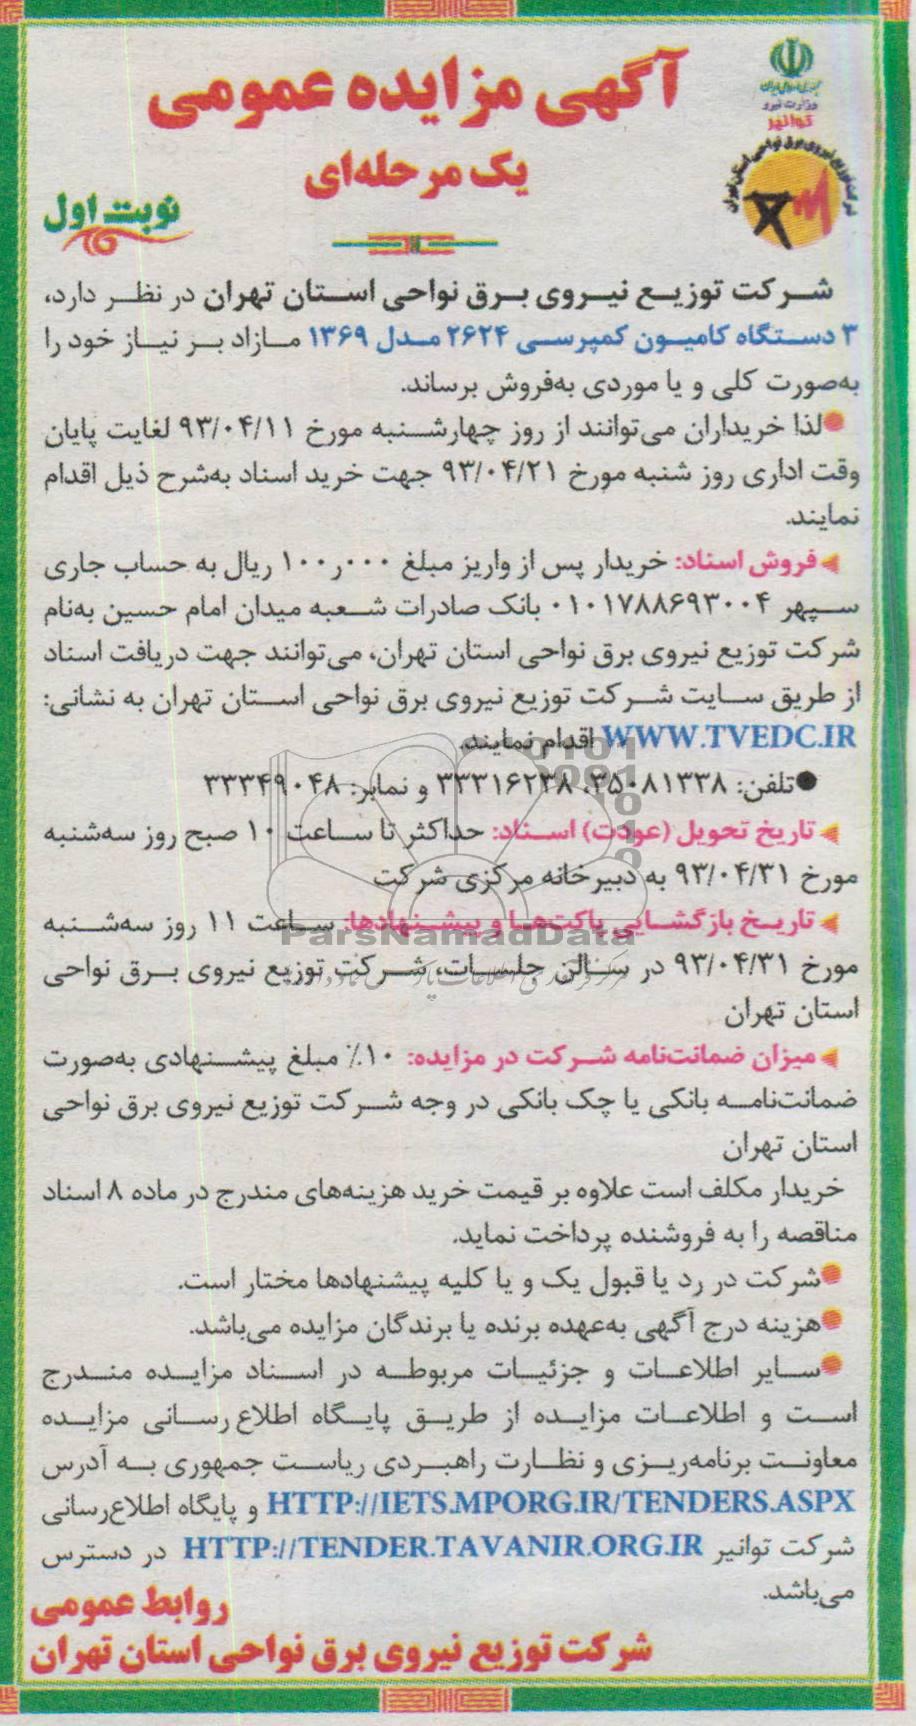 جمهوری اسلامی ایران
وزارت نیرو
توانیر
شرکت توزیع نیروی برق نواحی استان تهران
آگهی مزایده عمومی
یک مرحله‌ای
نوبت اول
شرکت توزیع نیروی برق نواحی استان تهران در نظر دارد،
۳ دستگاه کامیون کمپرسی ۲۶۲۴ مدل ۱۳۶۹ مازاد بر نیاز خود را
به‌صورت کلی و یا موردی به‌فروش برساند.
●لذا خریداران می‌توانند از روز چهارشنبه مورخ ۹۳/۰۴/۱۱ لغایت پایان
وقت اداری روز شنبه مورخ ۹۳/۰۴/۲۱ جهت خرید اسناد به‌شرح ذیل اقدام
نمایند.
فروش اسناد: خریدار پس از واریز مبلغ ۱۰۰ر۰۰۰ ریال به حساب جاری
سپهر ۰۱۰۱۷۸۸۶۹۳۰۰۴ بانک صادرات شعبه میدان امام حسین به‌نام
شرکت توزیع نیروی برق نواحی استان تهران، می‌توانند جهت دریافت اسناد
از طریق سایت شرکت توزیع نیروی برق نواحی استان تهران به نشانی:
WWW.TVEDC.IR اقدام نمایند.
●تلفن: ۳۵۰۸۱۳۳۸، ۳۳۳۱۶۲۳۸ و نمابر: ۳۳۳۴۹۰۴۸
تاریخ تحویل (عودت) اسناد: حداکثر تا ساعت ۱۰ صبح روز سه‌شنبه
مورخ ۹۳/۰۴/۳۱ به دبیرخانه مرکزی شرکت
تاریخ بازگشایی پاکت‌ها و پیشنهادها: ساعت ۱۱ روز سه‌شنبه
ParsNamadData
مورخ ۹۳/۰۴/۳۱ در سالن جلسات، شرکت توزیع نیروی برق نواحی
استان تهران
میزان ضمانت‌نامه شرکت در مزایده: ۱۰٪ مبلغ پیشنهادی به‌صورت
ضمانت‌نامه بانکی یا چک بانکی در وجه شرکت توزیع نیروی برق نواحی
استان تهران
خریدار مکلف است علاوه بر قیمت خرید هزینه‌های مندرج در ماده ۸ اسناد
مناقصه را به فروشنده پرداخت نماید.
●شرکت در رد یا قبول یک و یا کلیه پیشنهادها مختار است.
●هزینه درج آگهی به‌عهده برنده یا برندگان مزایده می‌باشد.
●سایر اطلاعات و جزئیات مربوطه در اسناد مزایده مندرج
است و اطلاعات مزایده از طریق پایگاه اطلاع رسانی مزایده
معاونت برنامه‌ریزی و نظارت راهبردی ریاست جمهوری به آدرس
HTTP://IETS.MPORG.IR/TENDERS.ASPX و پایگاه اطلاع‌رسانی
شرکت توانیر HTTP://TENDER.TAVANIR.ORG.IR در دسترس
می‌باشد.
روابط عمومی
شرکت توزیع نیروی برق نواحی استان تهران